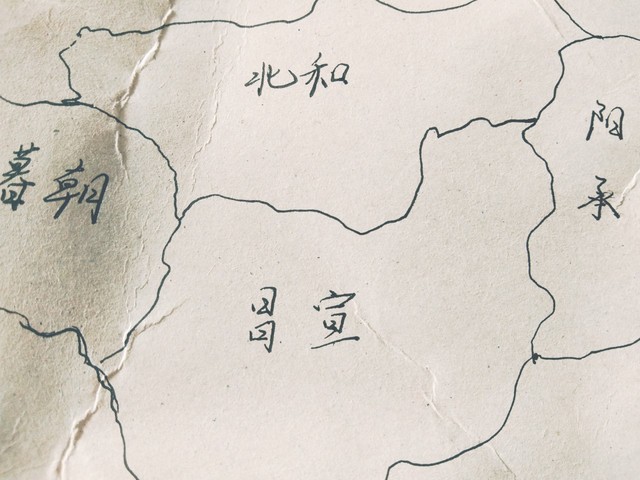 北和
阳承
暮朝
昌宣